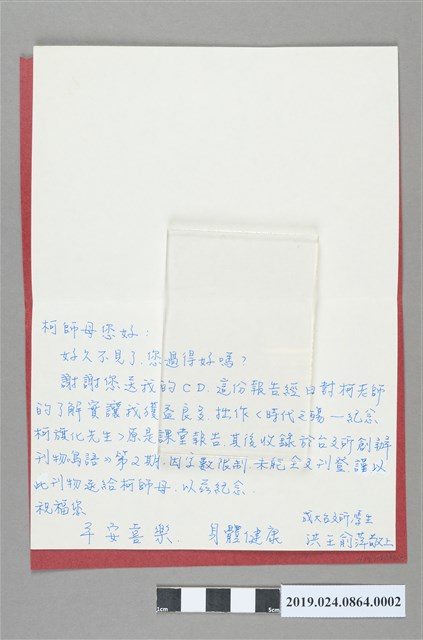 柯師母您好：
好久不見了，您過得好嗎？
謝謝您送我的CD，這份報告經由對柯老師
的了解實讓我獲益良多，拙作〈時代之殤—紀念
柯旗化先生〉原是課堂報告，其後收錄於台文所創辦
刊物《島語》第2期，因字數限制，未能全文刊登，謹以
此刊物送給柯師母，以茲紀念。
祝福您
平安喜樂、身體健康
成大台文所學生
洪王俞萍敬上
1cm 5cm
2019.024.0864.0002